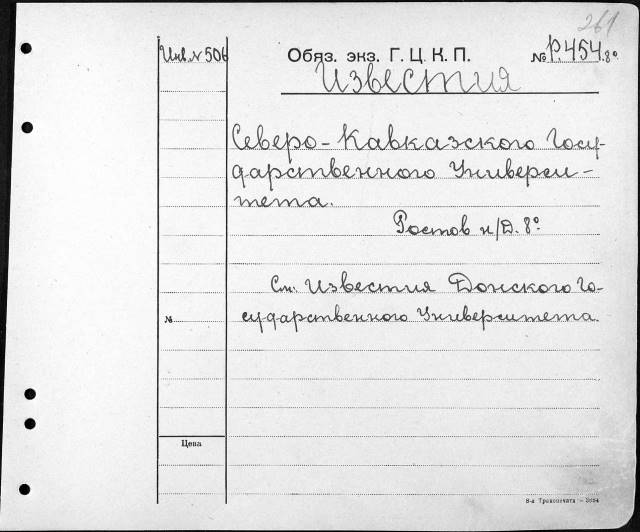 261
Инв. № 506
Обяз. экз. Г. Ц. К. П. № Р.454. 8º
Известия
Северо-Кавказского Госу-
дарственного Универси-
тета.
Ростов н/Д. 8º
См. Известия Донского Го-
сударственного Университета.
№
Цена